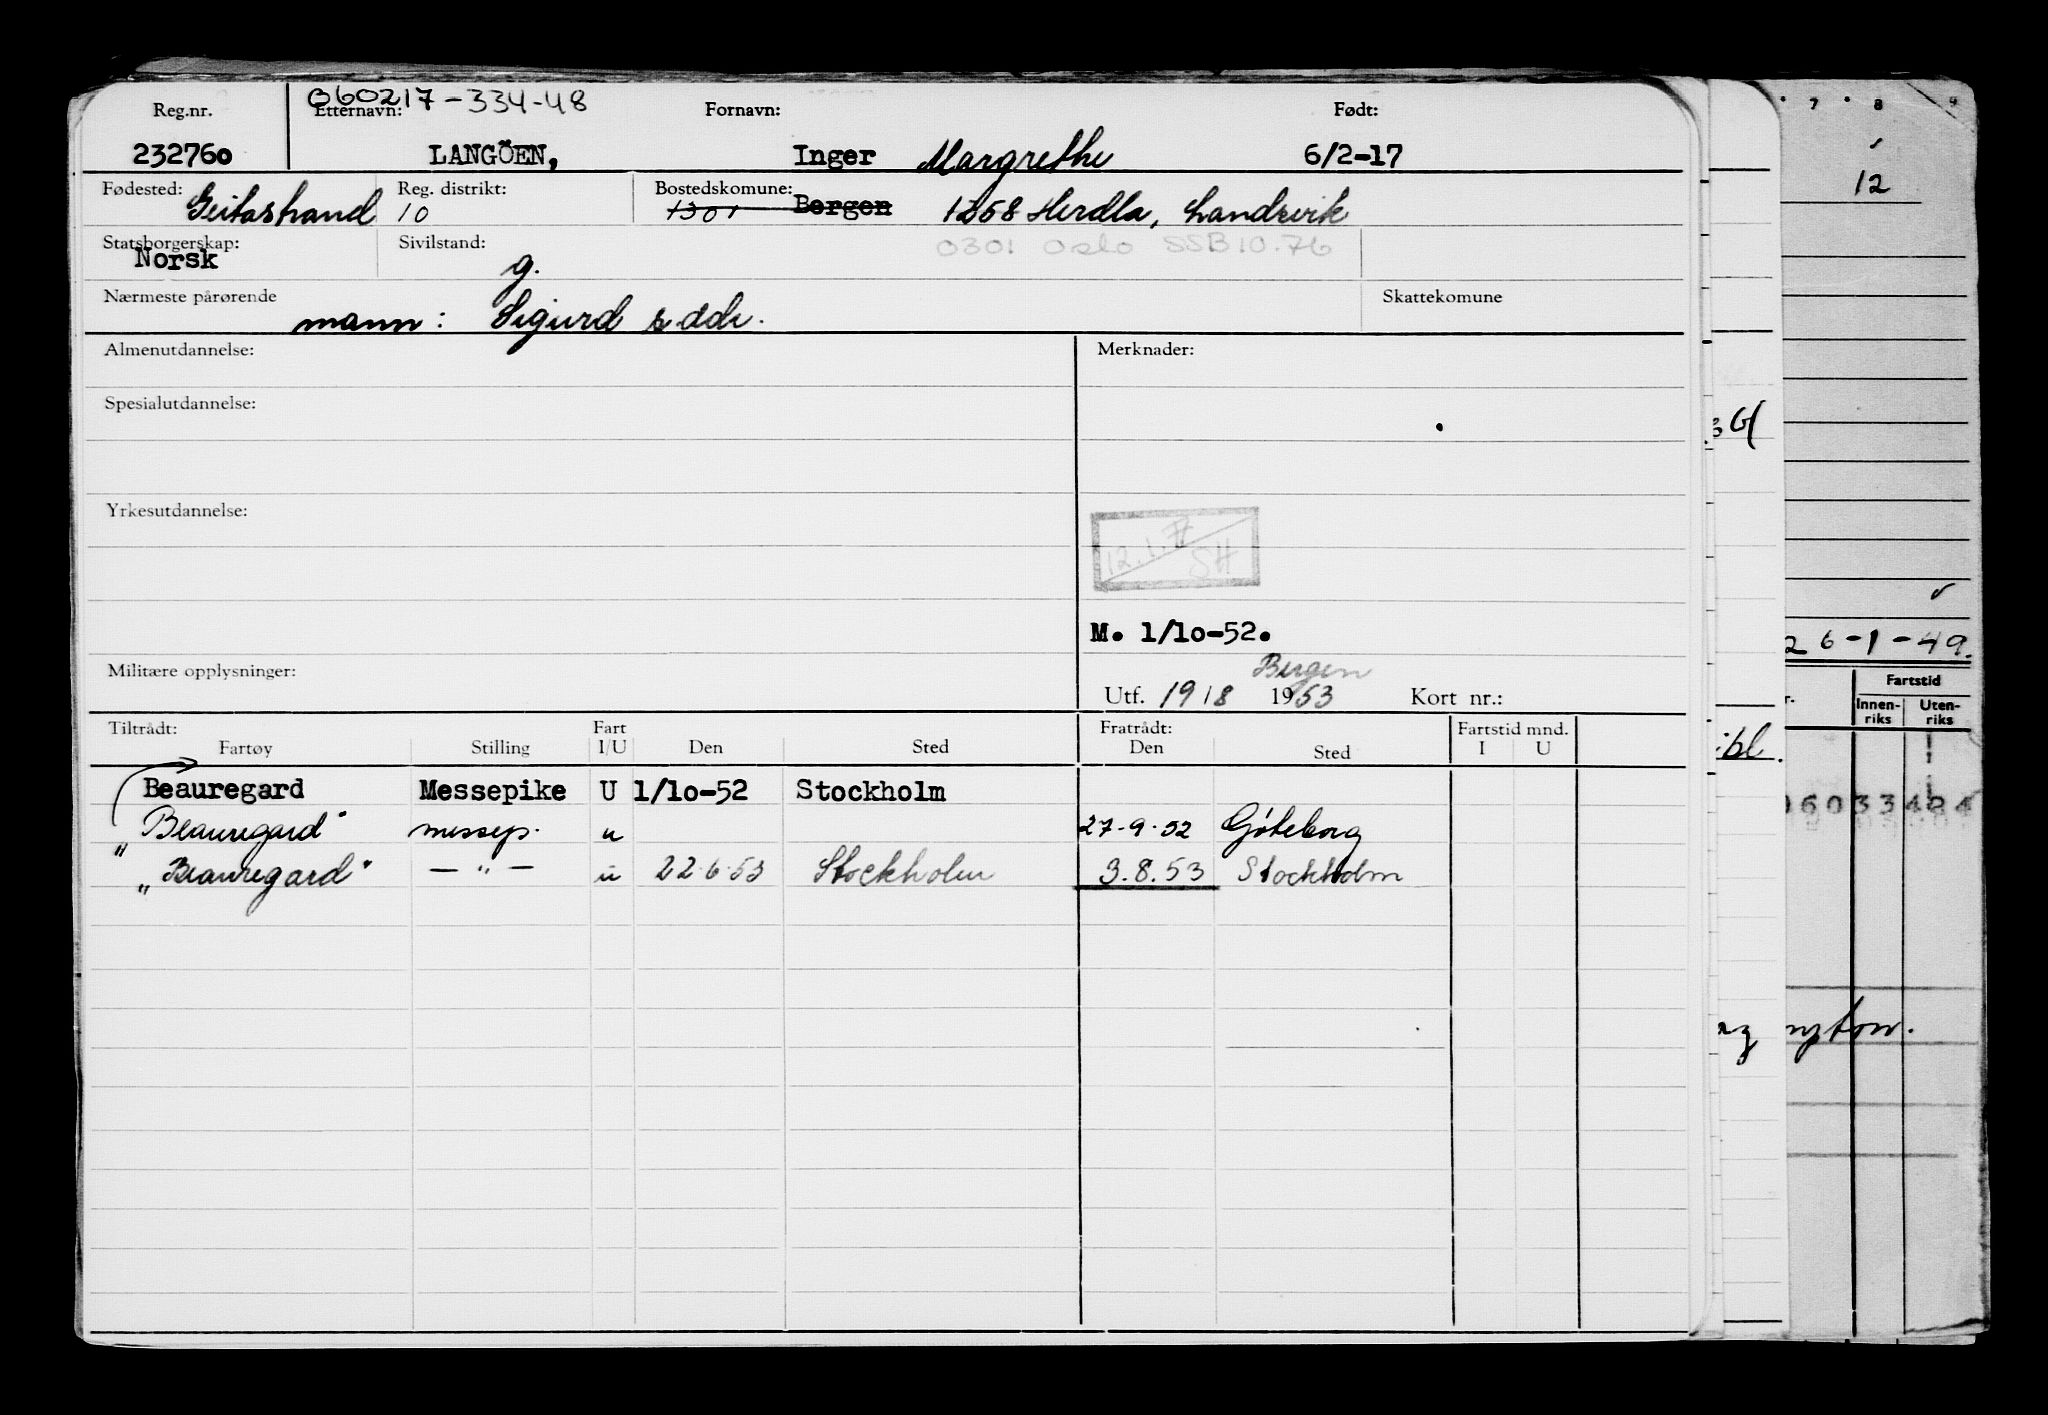 060217-334-48
Reg.nr. Etternavn: Fornavn: Født:
232760 LANGÖEN, Inger Margrethe 6/2-17
Fødested: Geitastrand Reg. distrikt: 10 Bostedskomune: 1301 Bergen 1258 Herdla, Landsvik
Statsborgerskap: Norsk Sivilstand: g. 0301 Oslo SSB 10.76
Nærmeste pårørende mann: Sigurd s.dde. Skattekomune
Almenutdannelse: Merknader:
Spesialutdannelse:
Yrkesutdannelse:
12.1.77 SH
M. 1/10-52.
Militære opplysninger:
Bergen
Utf. 19/8 1953 Kort nr.:
Tiltrådt: Fart Fratrådt: Fartstid mnd.
Fartøy Stilling I/U Den Sted Den Sted I U
Beauregard Messepike U 1/10-52 Stockholm
"Beauregard" messep. u 27-9-52 Göteborg
"Beauregard" — " — u 22.6.53 Stockholm 3.8.53 Stockholm
7 8 9
12
26-1-49.
Fartstid
Innen-riks Uten-riks
ibl.